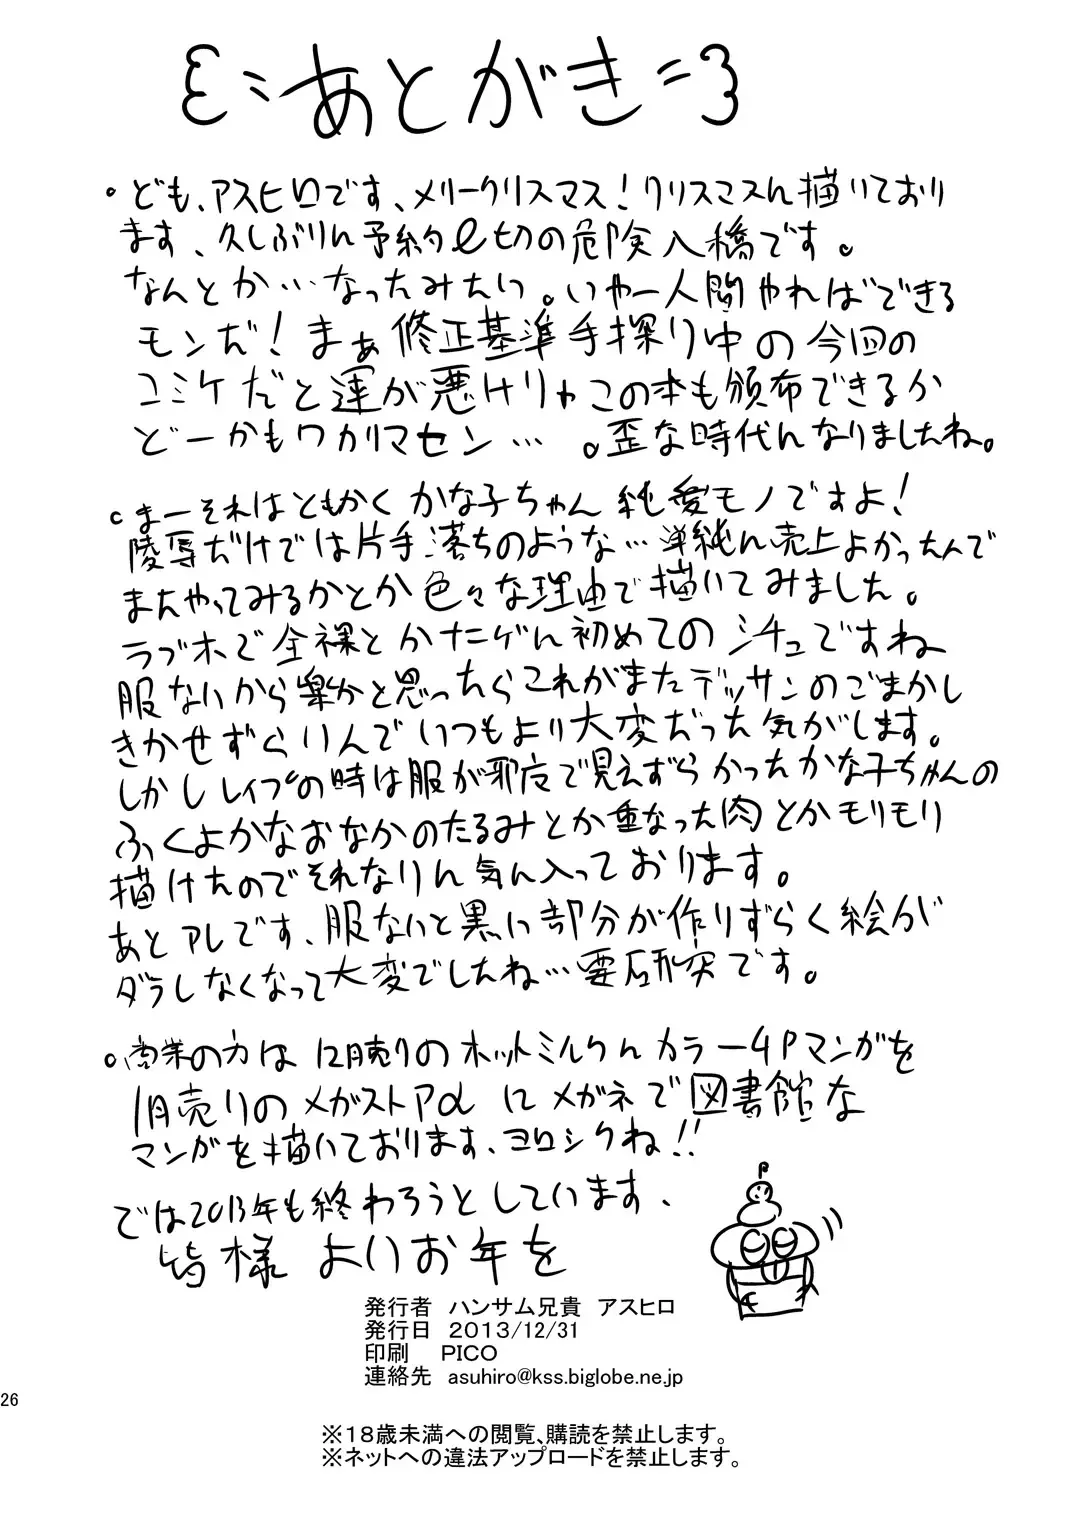 あとがき
。ども、アスヒロです、メリークリスマス!クリスマスに描いており
ます、久しぶりに予約〆切の危険入橋です。
なんとか…なったみたい。いやー人間やればできる
モンだ!まぁ修正基準手探り中の今回の
コミケだと運が悪けりゃこの本も頒布できるか
どーかもワカリマセン…。歪な時代になりましたね。
。まーそれはともかくかな子ちゃん純愛モノですよ!
陵辱だけでは片手落ちのような…単純に売上よかったんで
またやってみるかとか色々な理由で描いてみました。
ラブホで全裸とかナニゲに初めてのシチュですね
服ないから楽かと思ったらこれがまたデッサンのごまかし
きかせずらいんでいつもより大変だった気がします。
しかしレイプの時は服が邪魔で見えずらかったかな子ちゃんの
ふくよかなおなかのたるみとか重なった肉とかモリモリ
描けたのでそれなりに気に入っております。
あとアレです、服ないと黒い部分が作りずらく絵が
ダラしなくなって大変でしたね…要研究です。
。商業の方は12月売りのホットミルクにカラー4Pマンガを
1月売りのメガストアαにメガネで図書館な
マンガを描いております、ヨロシクね!!
では2013年も終わろうとしています、
皆様よいお年を
発行者 ハンサム兄貴 アスヒロ
発行日 2013/12/31
印刷 PICO
連絡先 asuhiro@kss.biglobe.ne.jp
26
※18歳未満への閲覧、購読を禁止します。
※ネットへの違法アップロードを禁止します。